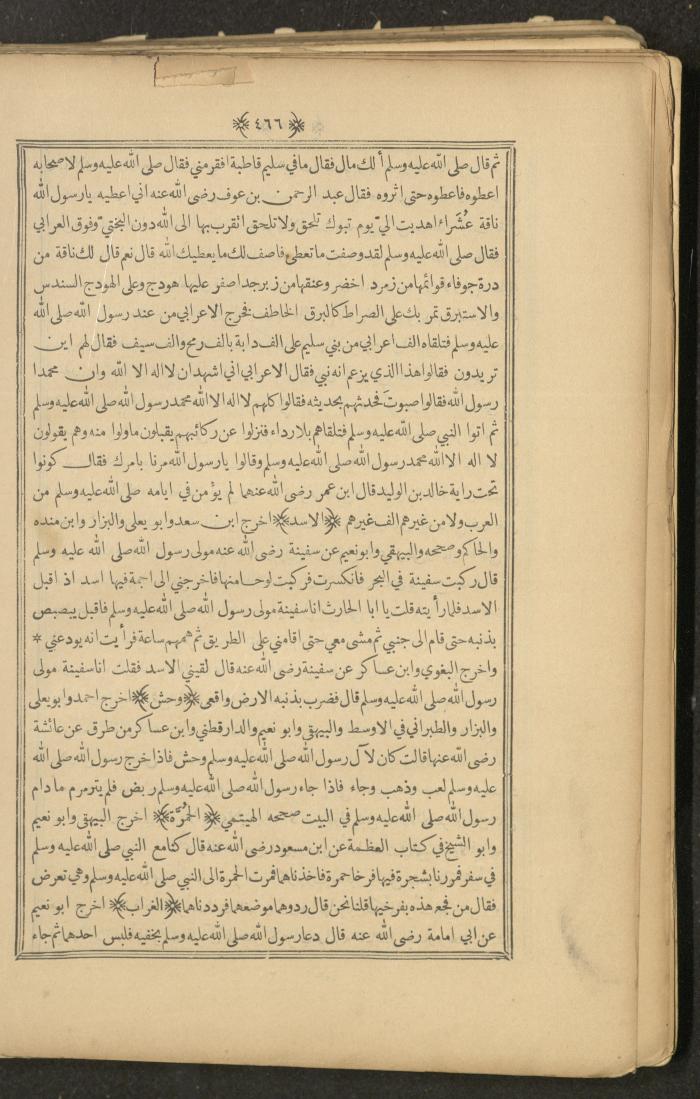 ﴿٤٦٦﴾
ثم قال صلى الله عليه وسلم ألك مال فقال ما في سليم قاطبة افقر مني فقال صلى الله عليه وسلم لاصحابه
اعطوه فاعطوه حتى اثروه فقال عبد الرحمن بن عوف رضى الله عنه اني اعطيه يارسول الله
ناقة عُشَراء اهديت اليّ يوم تبوك تلحق ولا تلحق اتقرب بها الى الله دون البختيّ وفوق العرابي
فقال صلى الله عليه وسلم لقد وصفت ما تعطى فاصف لك ما يعطيك الله قال نعم قال لك ناقة من
درة جوفاء قوائمها من زمرد اخضر وعنقها من زبرجد اصفر عليها هودج وعلى الهودج السندس
والاستبرق تمر بك على الصراط كالبرق الخاطف فخرج الاعرابي من عند رسول الله صلى الله
عليه وسلم فتلقاه الف اعرابي من بني سليم على الف دابة بالف رمح والف سيف فقال لهم اين
تريدون فقالوا هذا الذي يزعم انه نبي فقال الاعرابي اني اشهد ان لا اله الا الله وان محمدا
رسول الله فقالوا صبوتَ فحدثهم بحديثه فقالوا كلهم لا اله الا الله محمد رسول الله صلى الله عليه وسلم
ثم اتوا النبي صلى الله عليه وسلم فتلقاهم بلارداء فنزلوا عن ركائبهم يقبلون ماولوا منه وهم يقولون
لا اله الا الله محمد رسول الله صلى الله عليه وسلم وقالوا يارسول الله مرنا بامرك فقال كونوا
تحت راية خالد بن الوليد قال ابن عمر رضى الله عنهما لم يؤمن في ايامه صلى الله عليه وسلم من
العرب ولا من غيرهم الف غيرهم ﴿الاسد﴾ اخرج ابن سعد وابو يعلى والبزار وابن منده
والحاكم وصححه والبيهقي وابو نعيم عن سفينة رضى الله عنه مولى رسول الله صلى الله عليه وسلم
قال ركبت سفينة في البحر فانكسرت فركبت لوحا منها فاخرجني الى اجمة فيها اسد اذ اقبل
الاسد فلما رأيته قلت يا ابا الحارث انا سفينة مولى رسول الله صلى الله عليه وسلم فاقبل يبصبص
بذنبه حتى قام الى جنبي ثم مشى معي حتى اقامني على الطريق ثم همهم ساعة فرأيت انه يودعني *
واخرج البغوي وابن عساكر عن سفينة رضى الله عنه قال لقيني الاسد فقلت انا سفينة مولى
رسول الله صلى الله عليه وسلم قال فضرب بذنبه الارض واقعى ﴿وحش﴾ اخرج احمد وابو يعلى
والبزار والطبراني في الاوسط والبيهقي وابو نعيم والدارقطني وابن عساكر من طرق عن عائشة
رضى الله عنها قالت كان لآل رسول الله صلى الله عليه وسلم وحش فاذا خرج رسول الله صلى الله
عليه وسلم لعب وذهب وجاء فاذا جاء رسول الله صلى الله عليه وسلم ربض فلم يترمرم ما دام
رسول الله صلى الله عليه وسلم في البيت صححه الهيتمي ﴿الحُمَّرة﴾ اخرج البيهقي وابو نعيم
وابو الشيخ في كتاب العظمة عن ابن مسعود رضى الله عنه قال كنا مع النبي صلى الله عليه وسلم
في سفر فمررنا بشجرة فيها فرخا حمرة فاخذناهما فمرت الحمرة الى النبي صلى الله عليه وسلم وهي تعرض
فقال من فجع هذه بفرخيها قلنا نحن قال ردوهما موضعهما فرددناهما ﴿الغراب﴾ اخرج ابو نعيم
عن ابي امامة رضى الله عنه قال دعا رسول الله صلى الله عليه وسلم بخفيه فلبس احدهما ثم جاء